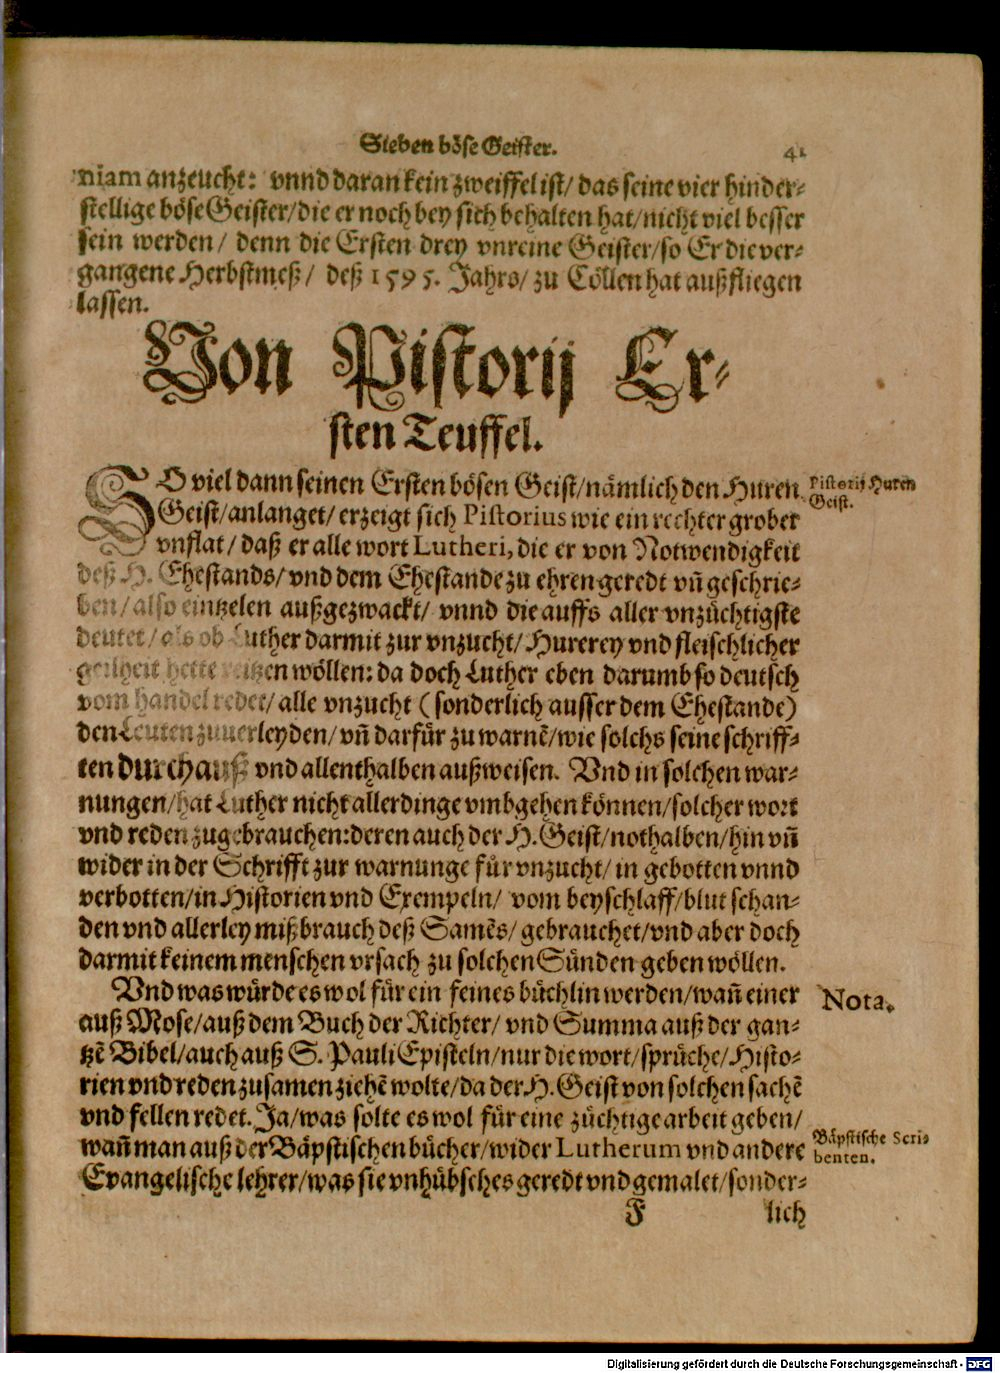 Sieben böse Geister. 41
niam anzeucht: vnnd daran kein zweiffel ist/ das seine vier hinder-
stellige böse Geister/ die er noch bey sich behalten hat/ nicht viel besser
sein werden/ denn die Ersten drey vnreine Geister/ so Er die ver-
gangene Herbstmeß/ deß 1595. Jahrs/ zu Cöllen hat außfliegen
lassen.
Von Pistorij Er-
sten Teuffel.
SO viel dann seinen Ersten bösen Geist/ nämlich den Huren
Pistorij Huren
Geist.
Geist/ anlanget/ erzeigt sich Pistorius wie ein rechter grober
vnflat/ daß er alle wort Lutheri, die er von Notwendigkeit
deß H. Ehestands/ vnd dem Ehestande zu ehren geredt vñ geschrie-
ben/ also eintzelen außgezwackt/ vnnd die auffs aller vnzüchtigste
deutet/ als ob Luther darmit zur vnzucht/ Hurerey vnd fleischlicher
geilheit hette reitzen wöllen: da doch Luther eben darumb so deutsch
vom handel redet/ alle vnzucht (sonderlich ausser dem Ehestande)
den Leuten zuuerleyden/ vñ darfür zu warnẽ/ wie solchs seine schriff-
ten durchauß vnd allenthalben außweisen. Vnd in solchen war-
nungen/ hat Luther nicht allerdinge vmbgehen können/ solcher wort
vnd reden zugebrauchen: deren auch der H. Geist/ nothalben/ hin vñ
wider in der Schrifft zur warnunge für vnzucht/ in gebotten vnnd
verbotten/ in Historien vnd Exempeln/ vom beyschlaff/ blut schan-
den vnd allerley mißbrauch deß Samẽs/ gebrauchet/ vnd aber doch
darmit keinem menschen vrsach zu solchen Sünden geben wöllen.
Vnd was würde es wol für ein feines büchlin werden/ wañ einer
Nota.
auß Mose/ auß dem Buch der Richter/ vnd Summa auß der gan-
tzẽ Bibel/ auch auß S. Pauli Episteln/ nur die wort/ sprüche/ Histo-
rien vnd reden zusamen ziehẽ wolte/ da der H. Geist von solchen sachẽ
vnd fellen redet. Ja/ was solte es wol für eine züchtige arbeit geben/
wañ man auß der Bäpstischen bücher/ wider Lutherum vnd andere
Bäpstische Scri-
benten.
Evangelische lehrer/ was sie vnhübsches geredt vnd gemalet/ sonder-
F lich
Digitalisierung gefördert durch die Deutsche Forschungsgemeinschaft - DFG